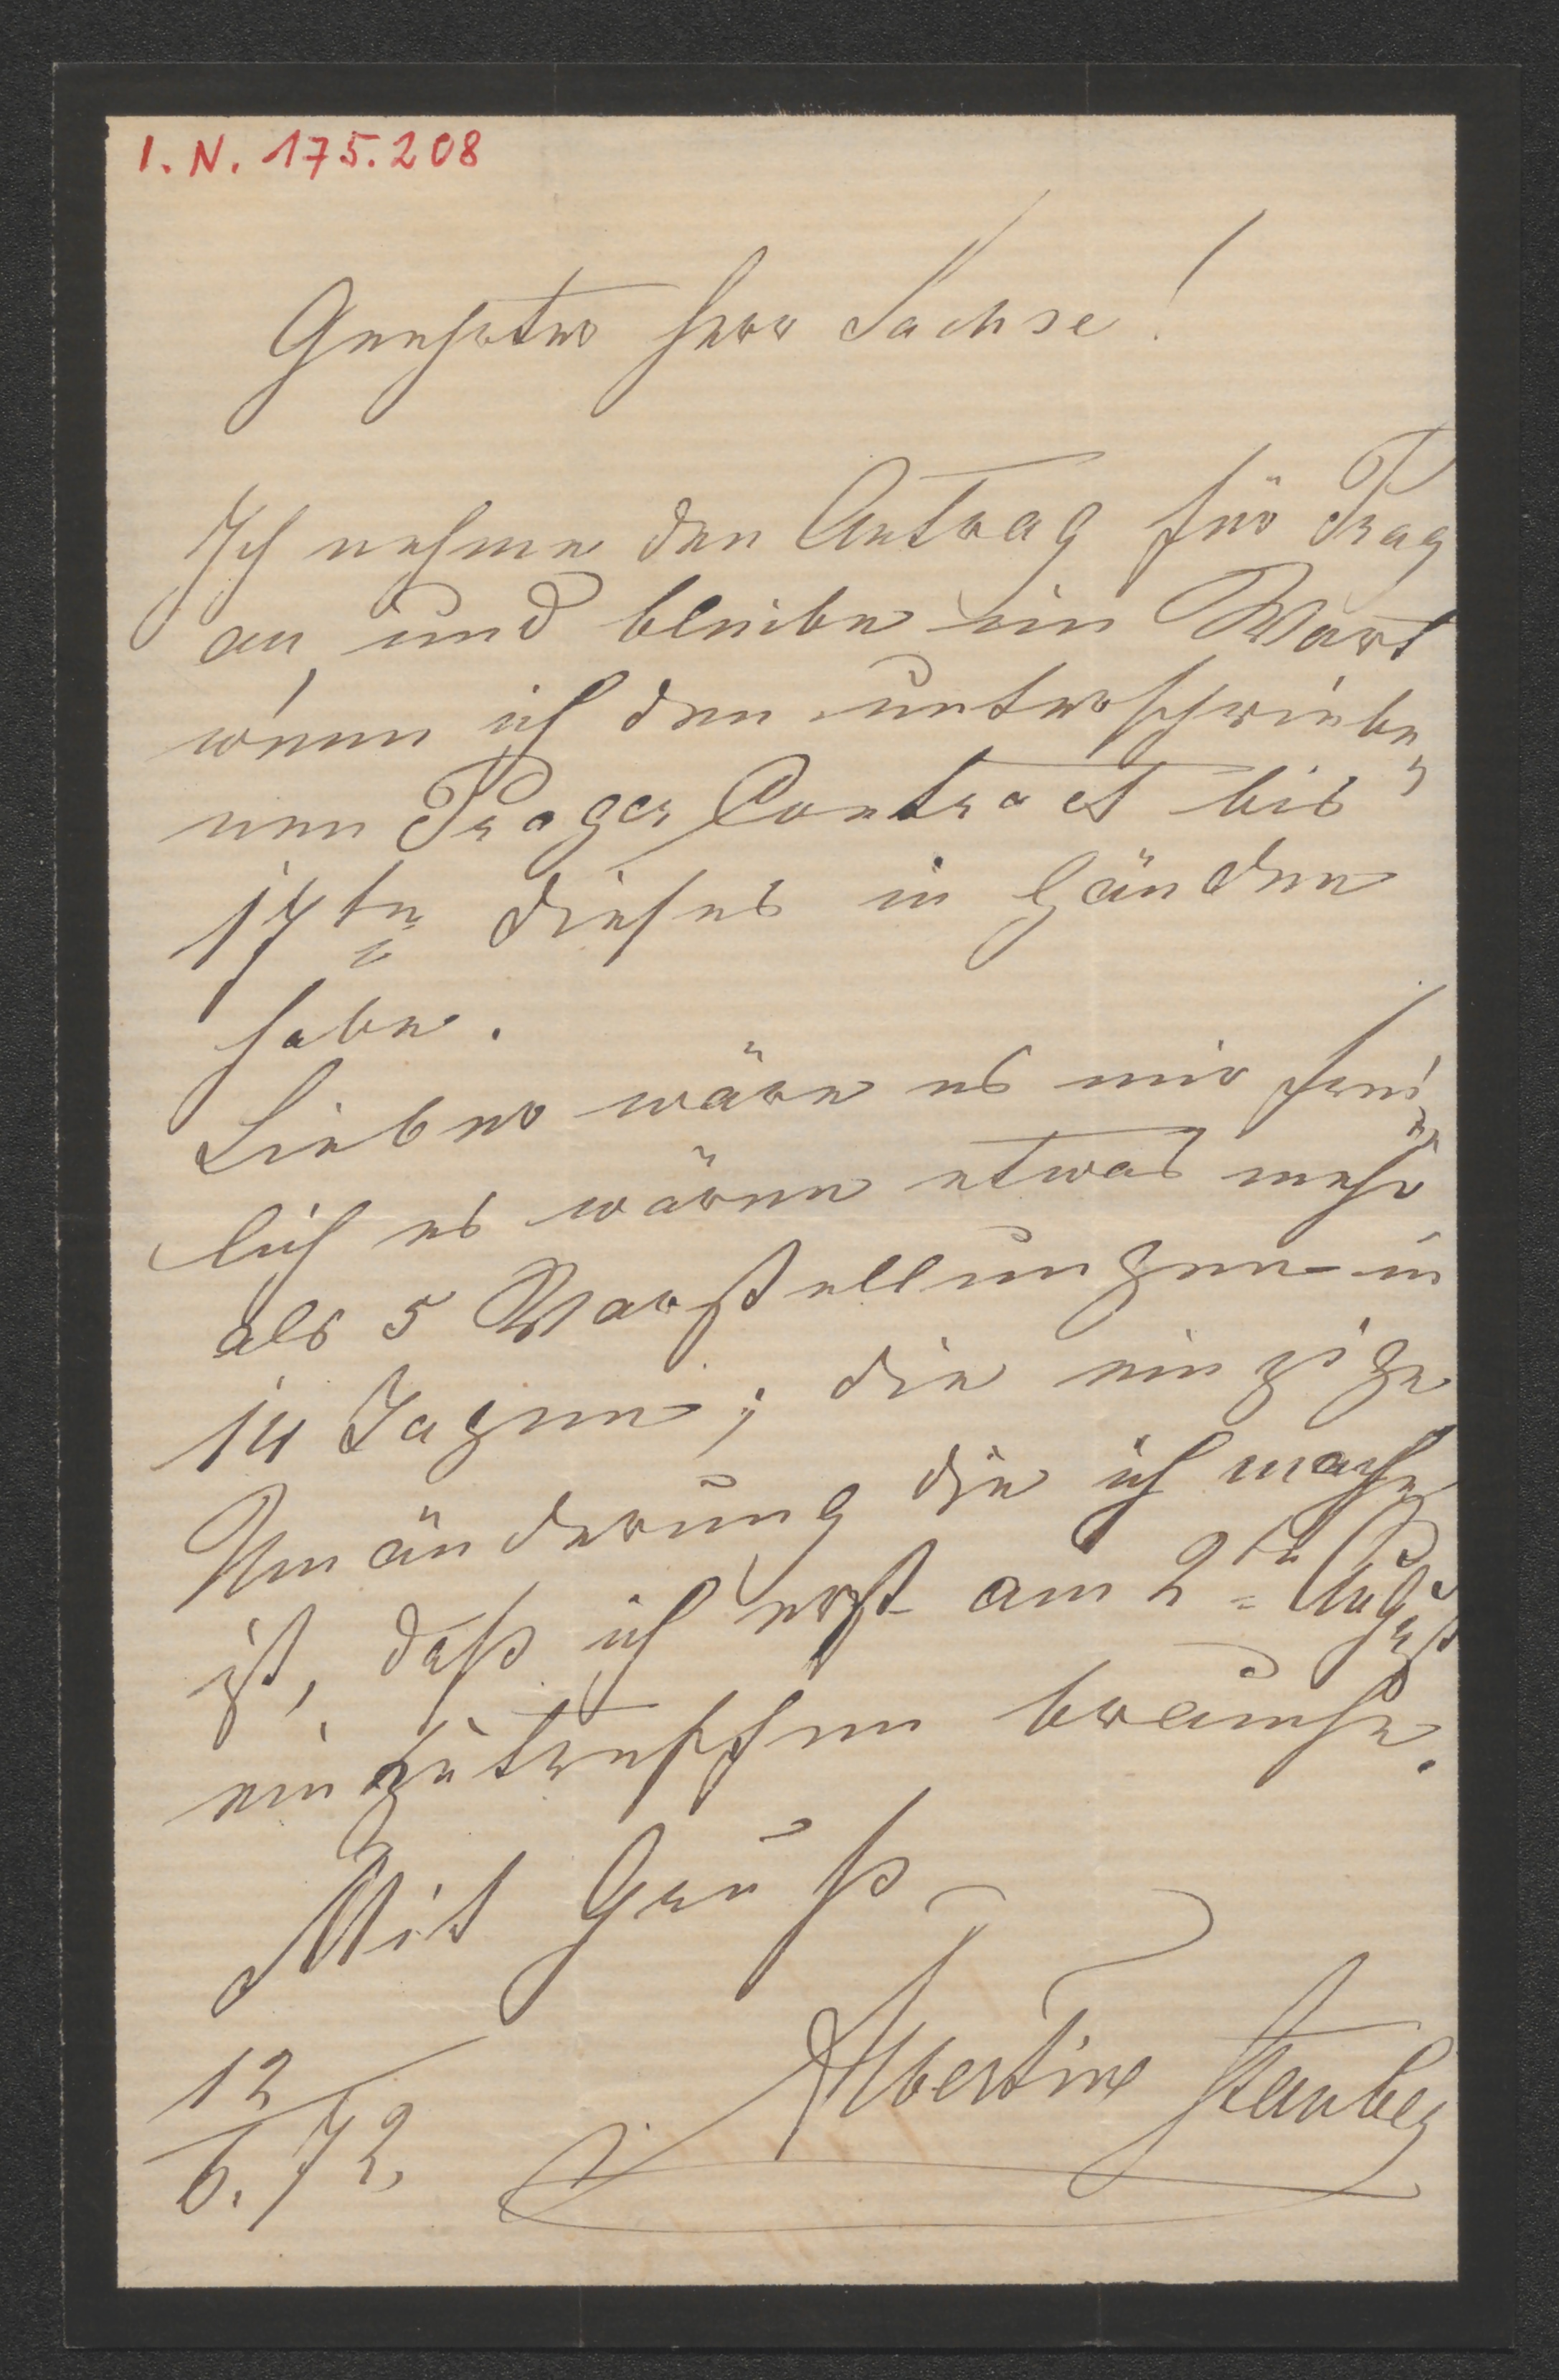 I. N. 175.208
Geehrter Herr Sachse!
Ich nehme den Antrag für Prag
an, und bleibe im Wort
wenn ich den unterschriebe„
nen Prager Contract bis
17ten dieses in Händen
habe.
Lieber wäre es mir frei„
lich es wären etwas mehr
als 5 Vorstellungen in
14 Tagen; die einzige
Umänderung die ich mache
ist, daß ich erst am 2ten August
einzutreffen brauche.
Mit Gruß
Albertine Stauber
12
6. 72.